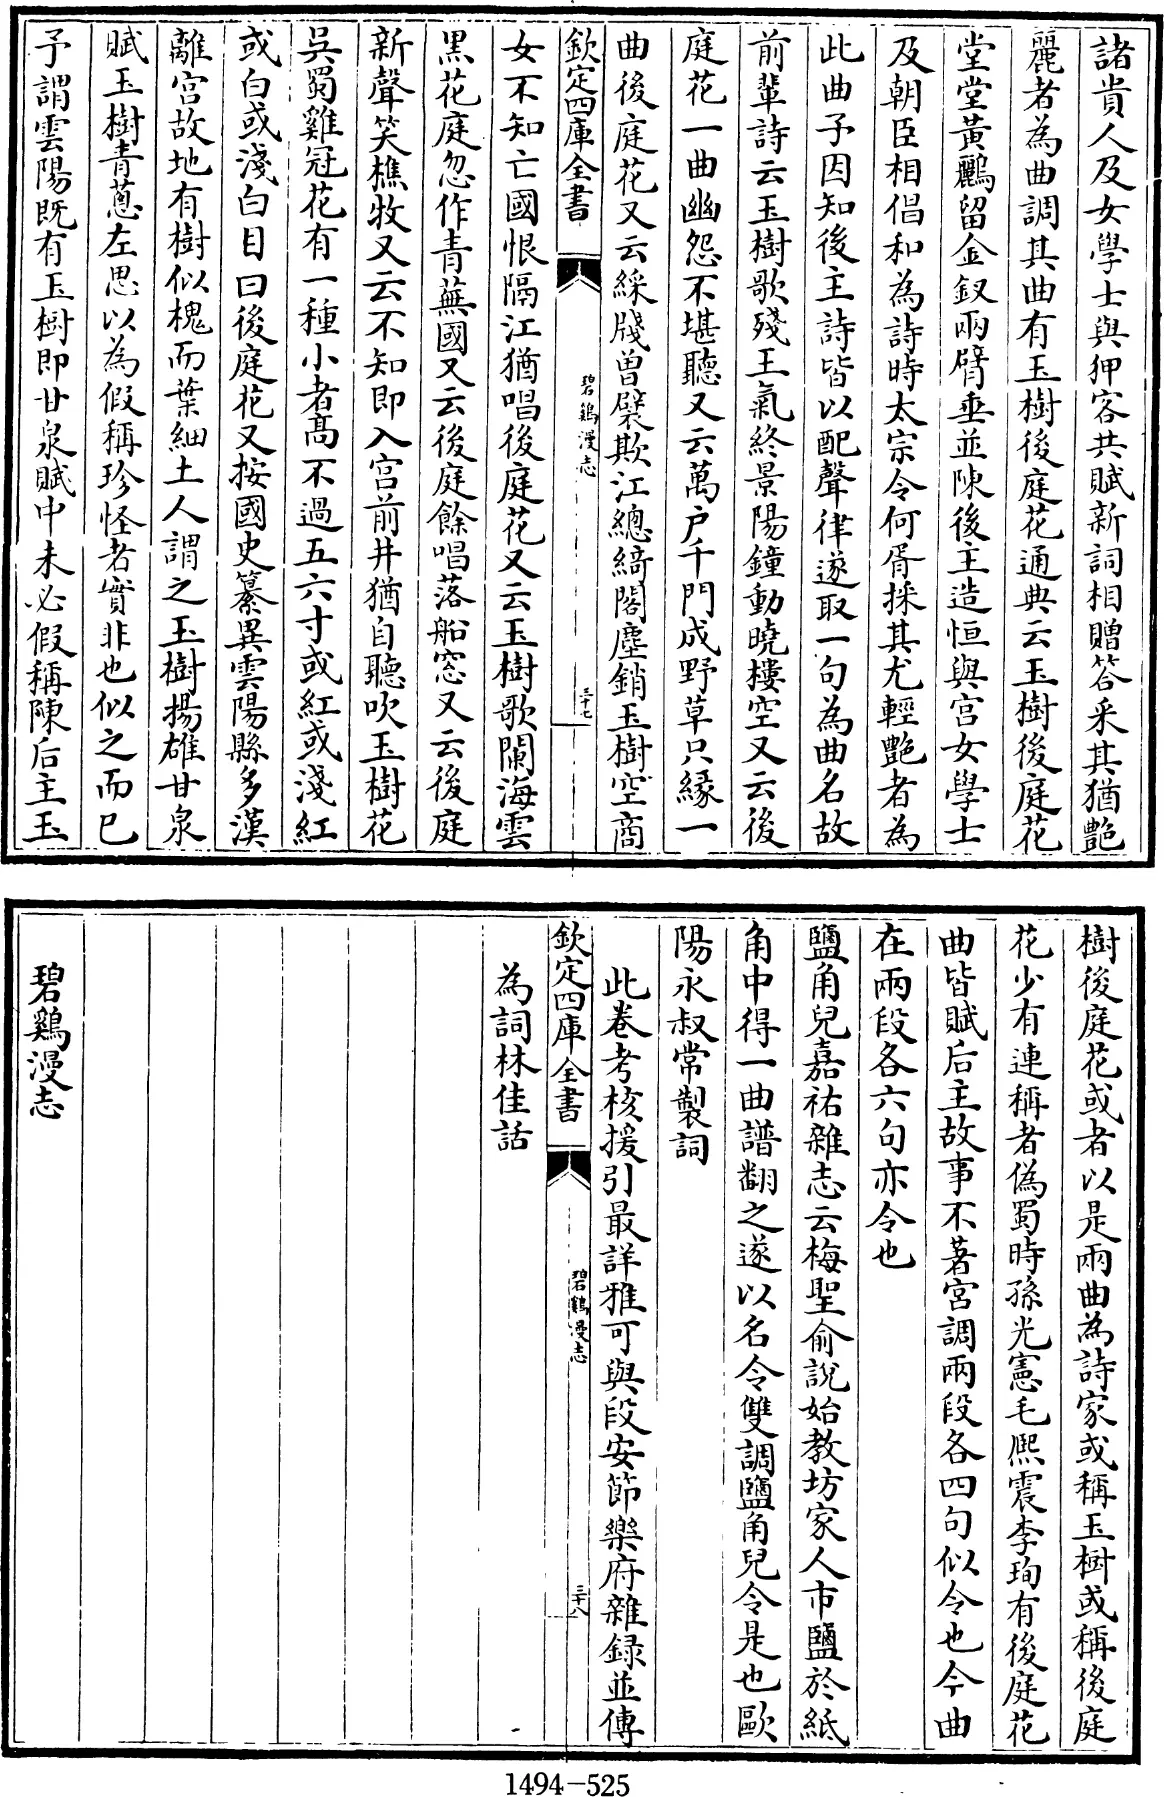 諸貴人及女學士與狎客共賦新詞相贈答采其猶艷
麗者為曲調其曲有玉樹後庭花通典云玉樹後庭花
堂堂黃鸝留金釵兩臂垂並陳後主造恒與宮女學士
及朝臣相倡和為詩時太宗令何胥採其尤輕艷者為
此曲予因知後主詩皆以配聲律遂取一句為曲名故
前輩詩云玉樹歌殘王氣終景陽鐘動曉樓空又云後
庭花一曲幽怨不堪聽又云萬户千門成野草只緣一
曲後庭花又云綵牋曽襞欺江總綺閣塵銷玉樹空商
欽定四庫全書
碧鷄漫志
三十七
女不知亡國恨隔江猶唱後庭花又云玉樹歌闌海雲
黑花庭忽作青蕪國又云後庭餘唱落船窓又云後庭
新聲笑樵牧又云不知即入宮前井猶自聽吹玉樹花
吳蜀雞冠花有一種小者髙不過五六寸或紅或淺紅
或白或淺白目曰後庭花又按國史纂異雲陽縣多漢
離宮故地有樹似槐而葉細土人謂之玉樹揚雄甘泉
賦玉樹青葱左思以為假稱珍怪者實非也似之而已
予謂雲陽既有玉樹即甘泉賦中未必假稱陳后主玉
樹後庭花或者以是兩曲為詩家或稱玉樹或稱後庭
花少有連稱者偽蜀時孫光憲毛熈震李珣有後庭花
曲皆賦后主故事不著宮調兩段各四句似令也今曲
在兩段各六句亦令也
鹽角兒嘉祐雜志云梅聖俞說始教坊家人市鹽於紙
角中得一曲譜翻之遂以名令雙調鹽角兒令是也歐
陽永叔常製詞
此卷考核援引最詳雅可與段安節樂府雜録並傳
欽定四庫全書
碧鷄漫志
三十八
為詞林佳話
碧鷄漫志
1494-525